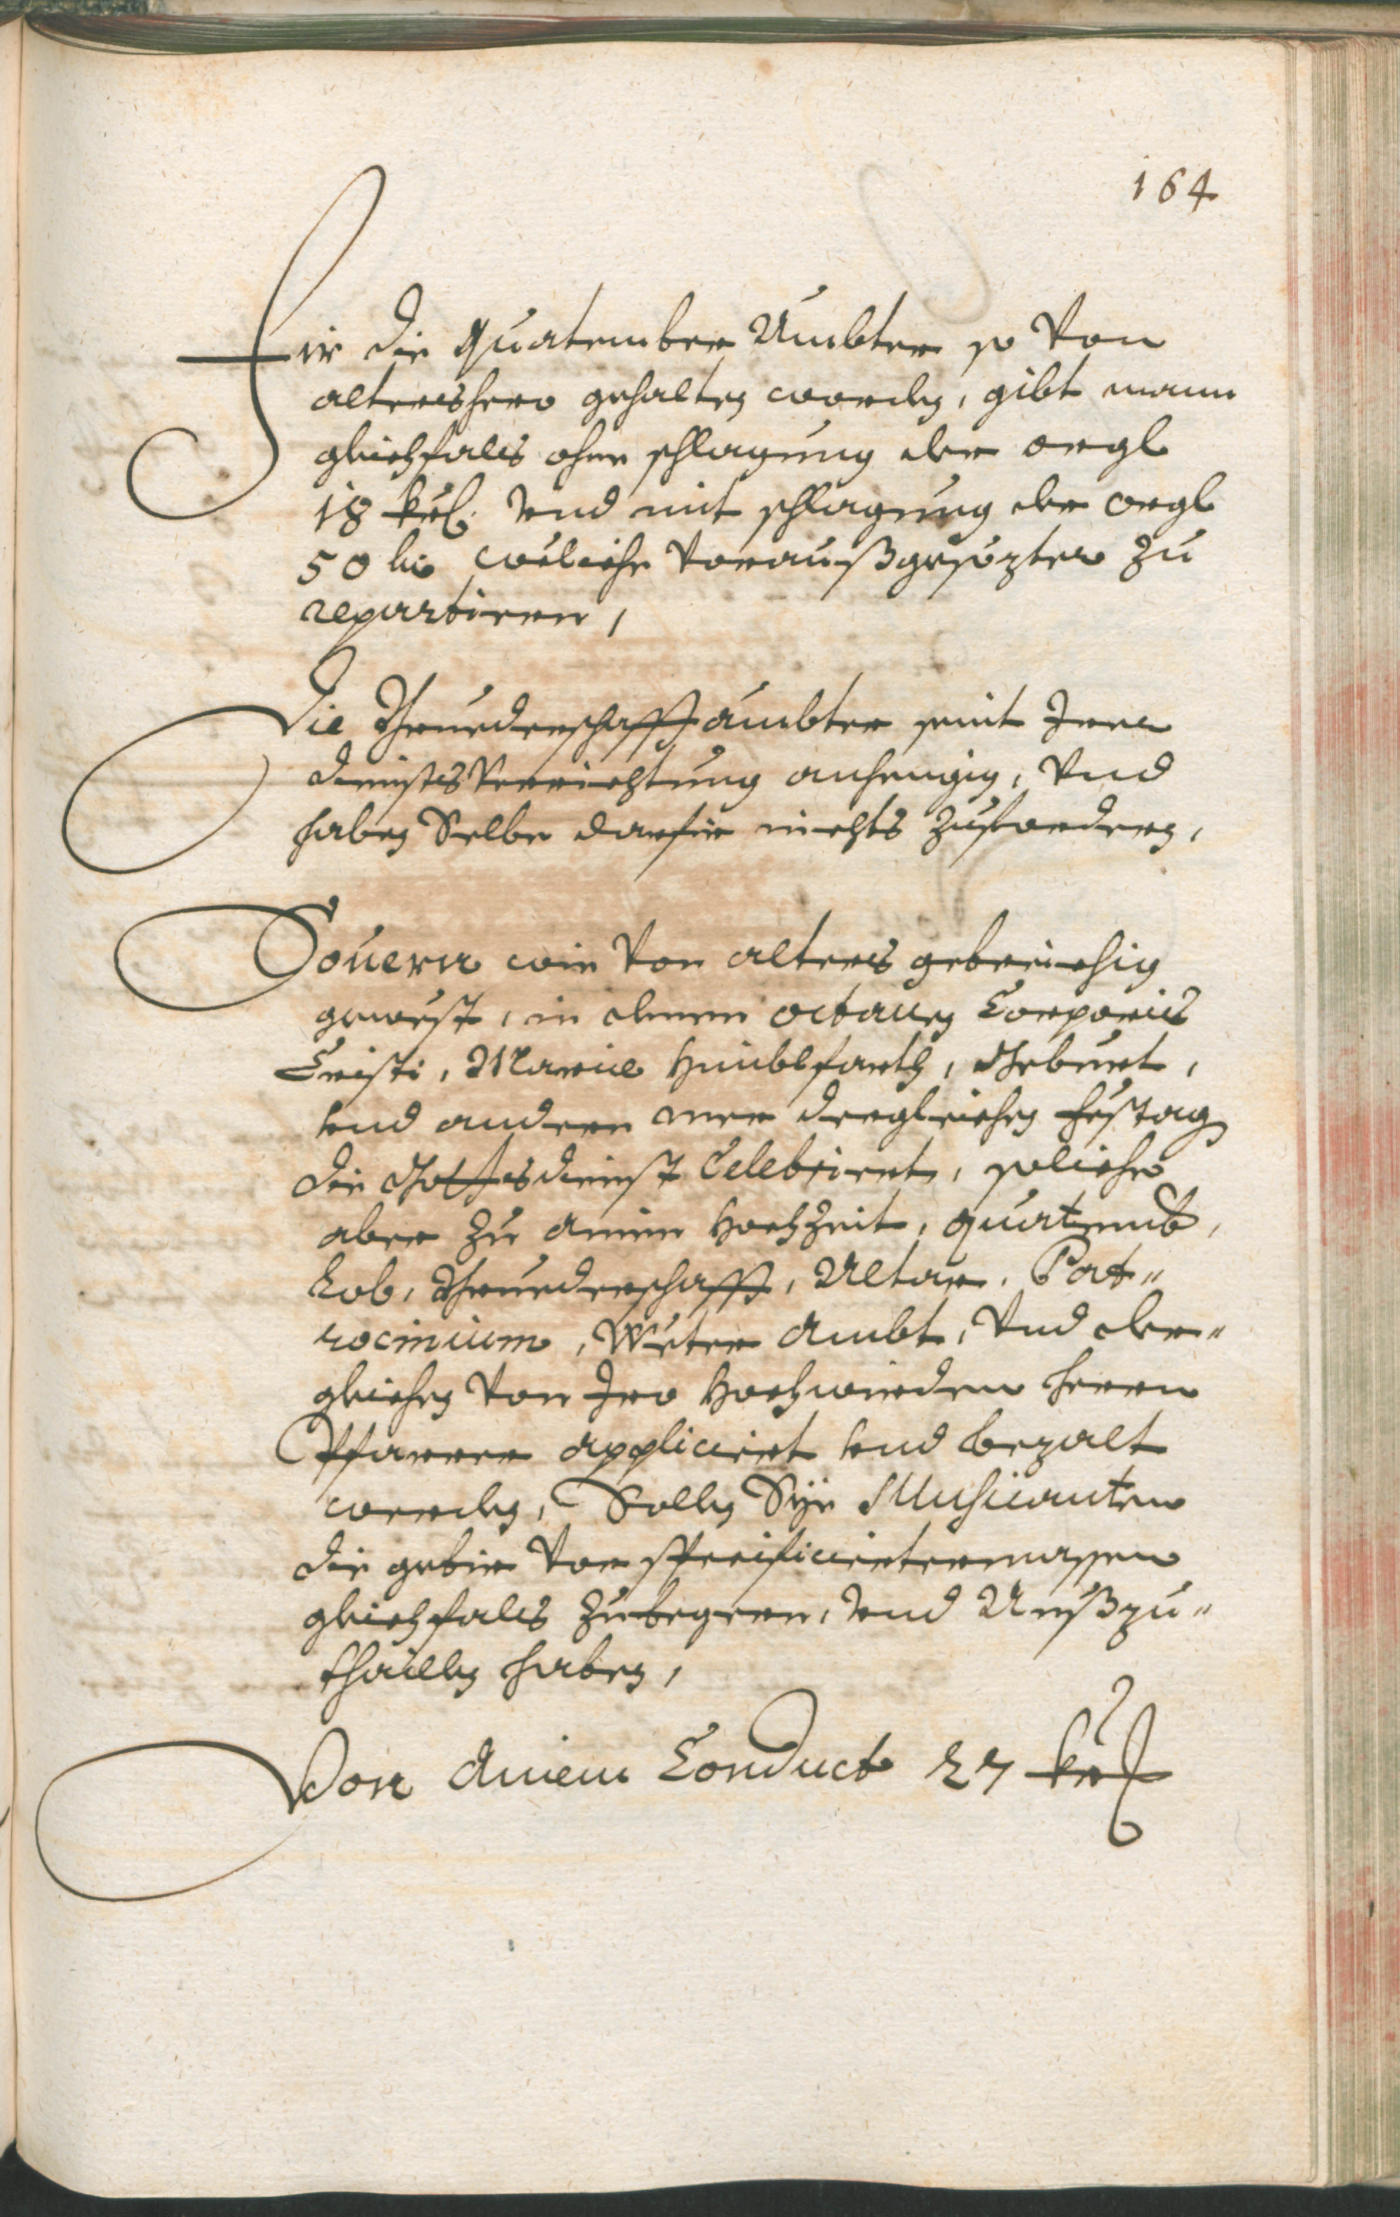 164
Fir die Quatember Ambter so von
altershero gehalten worden, gibt mann
gleichfals ohne schlagung der orgl
18 kr. vnd mit schlagung der orgl
50 kr weliche voraußgesezter zu
repartiren,
Die Bruederschafft ämbter seint Irer
diensts Verrichtung anhengig, vnd
haben Selbe darfür nichts zufordern,
Souern wie von alters gebreichig
gewest, in denen octauen Corporis
Cristi, Mariae Himblfarth, Geburt,
vnd andern mer dergleichen festag
die Gottsdienst Celebriert, soliche
aber zu ainem Hochzeit, quatemb,
Lob, Bruederschafft, Altar, Pat-
rocinium, Weter Ambt, vnd der-
gleichen von Iro Hochwürden herrn
Pfarrer applicirt vnd bezalt
werden, Sollen Sye Musicanten
die gebir vor specificirtermassen
gleichfals zubegern, vnd Außzu-
thaillen haben,
Von Ainem Conduct 27 kr